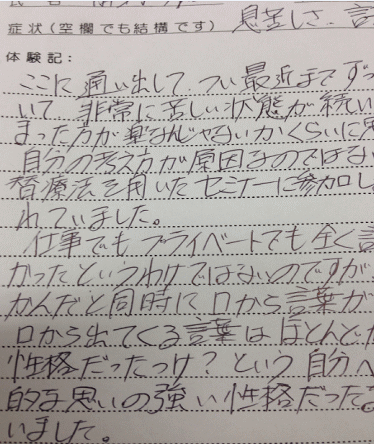 症状(空欄でも結構です) 息苦しさ、言
体験記:
ここに通い出して、つい最近までずっ
いて、非常に苦しい状態が続い
まった方が楽なんじゃないかくらいに思
自分の考え方が原因なのではない
替療法を用いたセミナーに参加し
れていました。
仕事でもプライベートでも全く言
かったというわけではないのですが、
かんだと同時に口から言葉が
口から出てくる言葉はほとんど
性格だったっけ?という自分へ
的な思いの強い性格だった。
いました。